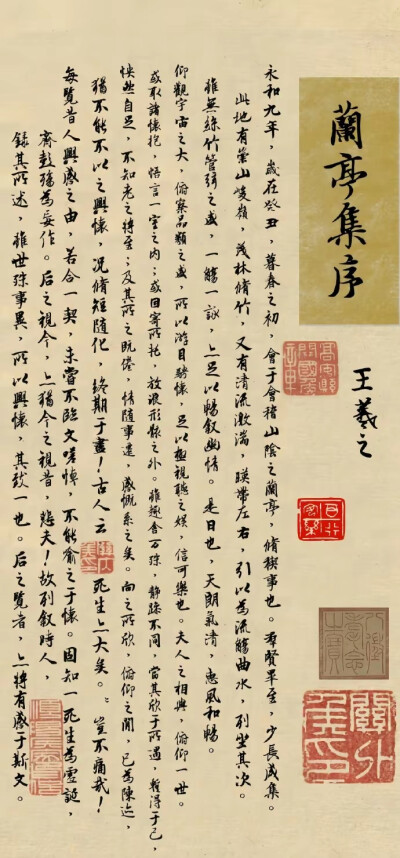 蘭亭集序
王羲之
永和九年，歲在癸丑，暮春之初，會于會稽山陰之蘭亭，脩禊事也。羣賢畢至，少長咸集。
此地有崇山峻嶺，茂林脩竹，又有清流激湍，暎帶左右，引以為流觴曲水，列坐其次。
雖無絲竹管弦之盛，一觴一詠，亦足以暢叙幽情。是日也，天朗氣清，惠風和暢。
仰觀宇宙之大，俯察品類之盛，所以游目騁懷，足以極視聽之娛，信可樂也。夫人之相與，俯仰一世。
或取諸懷抱，悟言一室之内；或因寄所托，放浪形骸之外。雖趣舍万殊，靜躁不同，當其欣于所遇，暫得于己，
怏然自足，不知老之將至；及其所之既倦，情隨事遷，感慨系之矣。向之所欣，俯仰之間，已為陳迹，
猶不能不以之興懷，況脩短隨化，終期于盡！古人云 死生亦大矣。豈不痛哉！
每覽昔人興感之由，若合一契，未嘗不臨文嗟悼，不能喻之于懷。固知一死生為虛誕，
齊彭殤為妄作。后之視今，亦猶今之視昔，悲夫！故列叙時人，
錄其所述，雖世殊事異，所以興懷，其致一也。后之覽者，亦將有感于斯文。
關外侯印